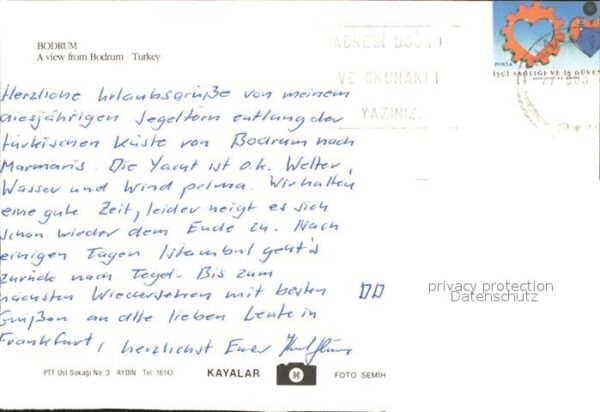 BODRUM
A view from Bodrum - Turkey
ADRESİ DOĞRU
VE OKUNAKLI
YAZINIZ.
POSTA
İŞÇİ SAĞLIĞI VE İŞ GÜVEN
Herzliche Urlaubsgrüße von meinem
diesjährigen Segeltörn entlang der
türkischen Küste von Bodrum nach
Marmaris. Die Yacht ist o.k. Wetter,
Wasser und Wind prima. Wir hatten
eine gute Zeit, leider neigt es sich
schon wieder dem Ende zu. Nach
einigen Tagen Istambul geht's
zurück nach Tegel. Bis zum
nächsten Wiedersehen mit besten
Grüßen an alle lieben Leute in
Frankfurt, herzlichst Euer
privacy protection
Datenschutz
PTT Üst Sokağı No: 3 AYDIN Tel: 16143 KAYALAR FOTO: SEMİH